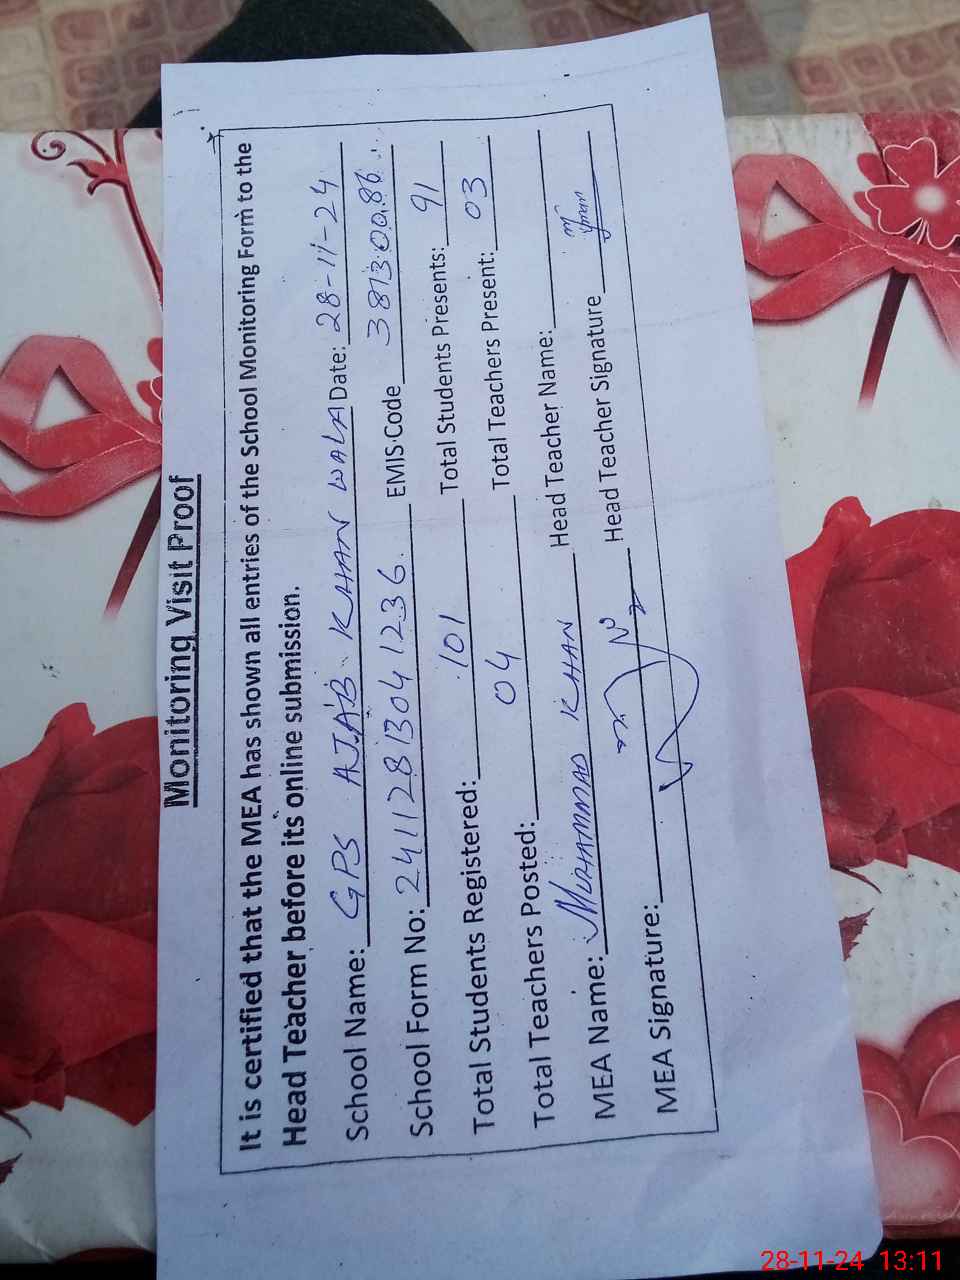 Monitoring Visit Proof
It is certified that the MEA has shown all entries of the School Monitoring Form to the
Head Teacher before its online submission.
School Name: GPS AJAB KHAN WALA Date: 28-11-24
School Form No: 24112813041236. EMIS Code 38130086
Total Students Registered: 101 Total Students Presents: 91
Total Teachers Posted: 04 Total Teachers Present: 03
MEA Name: MUHAMMAD KHAN Head Teacher Name:
MEA Signature: Head Teacher Signature
28-11-24 13:11